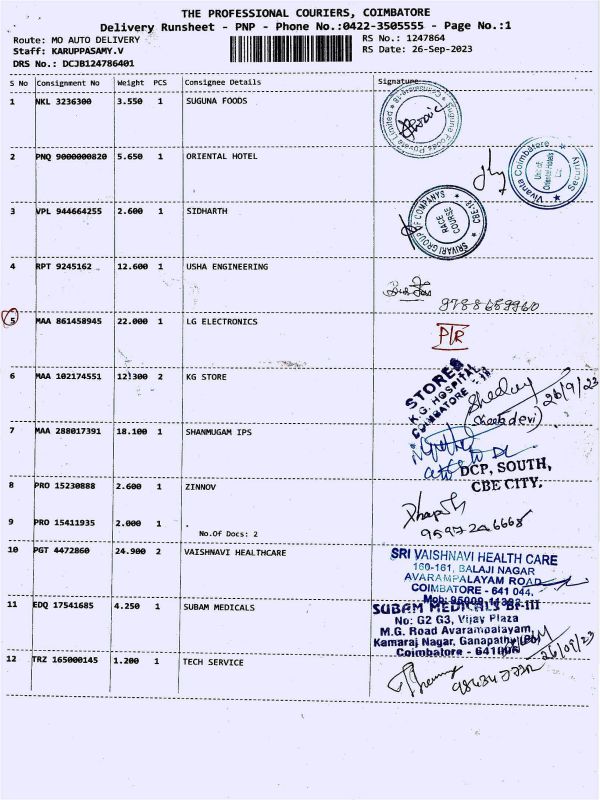 THE PROFESSIONAL COURIERS, COIMBATORE
Delivery Runsheet - PNP - Phone No.:0422-3505555 - Page No.:1
Route: MO AUTO DELIVERY RS No.: 1247864
Staff: KARUPPASAMY.V RS Date: 26-Sep-2023
DRS No.: DCJB124786401
S No Consignment No Weight PCS Consignee Details Signature
1 NKL 3236300 3.550 1 SUGUNA FOODS
Suguna Foods Private Limited
2 PNQ 9000000820 5.650 1 ORIENTAL HOTEL
Vivanta Coimbatore
Unit of
Oriental Hotels
Security
3 VPL 944664255 2.600 1 SIDHARTH
SRIVARI GROUP OF COMPANYS
RACE
COURSE
CBE-18
4 RPT 9245162 12.600 1 USHA ENGINEERING
9788659960
5 MAA 861458945 22.000 1 LG ELECTRONICS
P/R
6 MAA 102174551 12.300 2 KG STORE
STORES
K.G. HOSPITAL
COIMBATORE
26/9/23
7 MAA 288017391 18.100 1 SHANMUGAM IPS
DCP, SOUTH,
CBE CITY.
8 PRO 15230888 2.600 1 ZINNOV
9597246668
9 PRO 15411935 2.000 1
No.Of Docs: 2
10 PGT 4472860 24.900 2 VAISHNAVI HEALTHCARE
SRI VAISHNAVI HEALTH CARE
160-161, BALAJI NAGAR
AVARAMPALAYAM ROAD
COIMBATORE - 641 044.
11 EDQ 17541685 4.250 1 SUBAM MEDICALS
SUBAM MEDICALS Br-III
No: G2 G3, Vijay Plaza
M.G. Road Avarampalayam,
Kamaraj Nagar, Ganapathy
Coimbatore - 641006
26/09/23
12 TRZ 165000145 1.200 1 TECH SERVICE